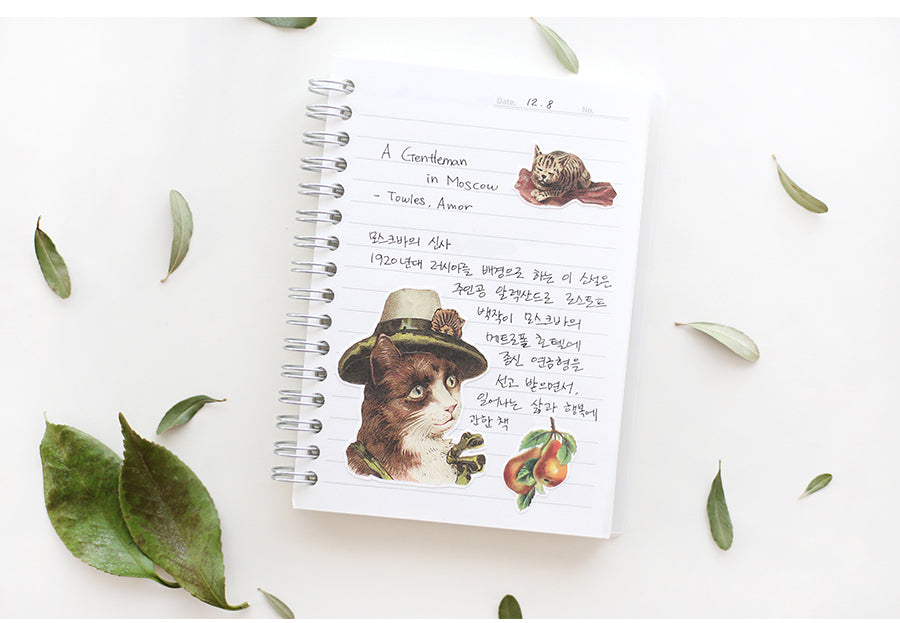 Date. 12. 8 No.
A Gentleman
in Moscow
- Towles, Amor
모스크바의 신사
1920년대 러시아를 배경으로 하는 이 소설은
주인공 알렉산드로 로스토프
백작이 모스크바의
메트로폴 호텔에
종신 연금형을
선고 받으면서,
일어나는 삶과 행복에
관한 책